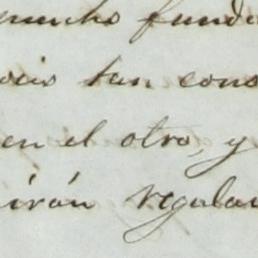 mucho funda
ocis tan cons
en el otro, y
irán regular